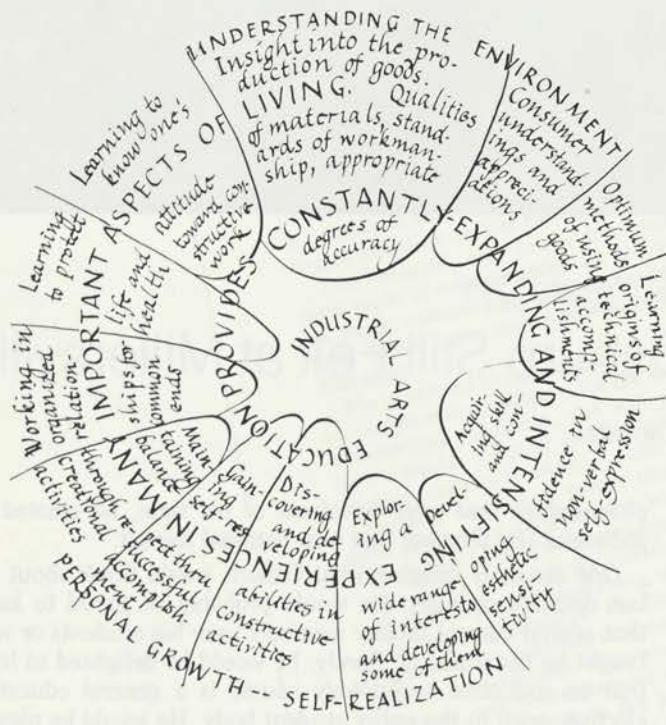 INDUSTRIAL ARTS
EDUCATION PROVIDES
CONSTANTLY-EXPANDING AND INTENSIFYING
EXPERIENCES IN MANY IMPORTANT ASPECTS OF LIVING.
UNDERSTANDING THE ENVIRONMENT
Insight into the pro-
duction of goods.
Qualities
of materials, stand-
ards of workman-
ship, appropriate
degrees of
accuracy
Consumer
understand-
ings and
appreci-
ations
Optimum
methods
of using
goods
Learning
origins of
technical
accomp-
lishments
Acquir-
ing skill
and con-
fidence in
non-verbal
self-expression
Devel-
oping
esthetic
sensi-
tivity
Explor-
ing a
wide range
of interests
and developing
some of them
Dis-
covering
and de-
veloping
abilities in
constructive
activities
Gain-
ing
self-res-
pect thru
successful
accomplish-
ment
Main-
taining
balance
through re-
creational
activities
Working in
organized
relation-
ships for
common
ends
Learning
to protect
life and
health
Learning to
know one's
attitude
toward con-
structive
work
PERSONAL GROWTH - SELF-REALIZATION